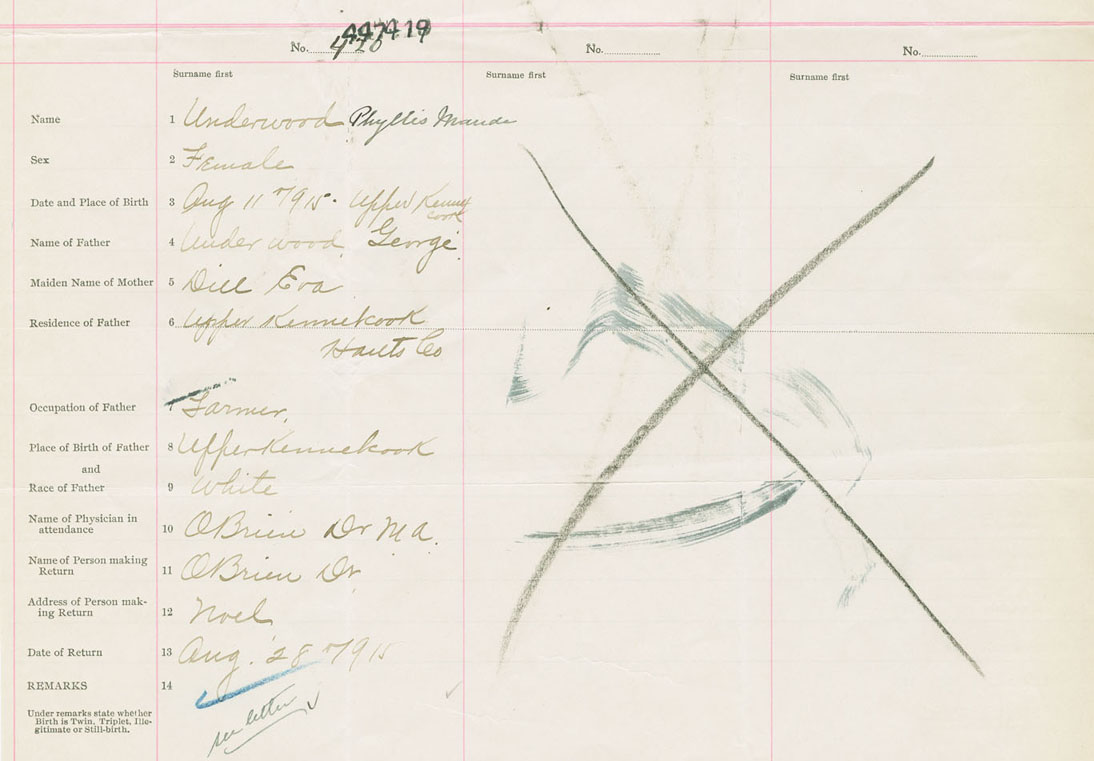 No. 447419 No. No.
Surname first Surname first Surname first
Name 1 Underwood Phyllis Maude
Sex 2 Female
Date and Place of Birth 3 Aug 11th/915. Upper Kennet
cook
Name of Father 4 Underwood, George
Maiden Name of Mother 5 Dill Eva
Residence of Father 6 Upper Kennetcook
Hants Co
Occupation of Father 7 Farmer,
Place of Birth of Father 8 Upper Kennetcook
and
Race of Father 9 White
Name of Physician in
attendance 10 OBrien Dr M A.
Name of Person making
Return 11 OBrien Dr
Address of Person mak-
ing Return 12 Noel
Date of Return 13 Aug. 28th/915
REMARKS 14
see letter
Under remarks state whether
Birth is Twin, Triplet, Ille-
gitimate or Still-birth.